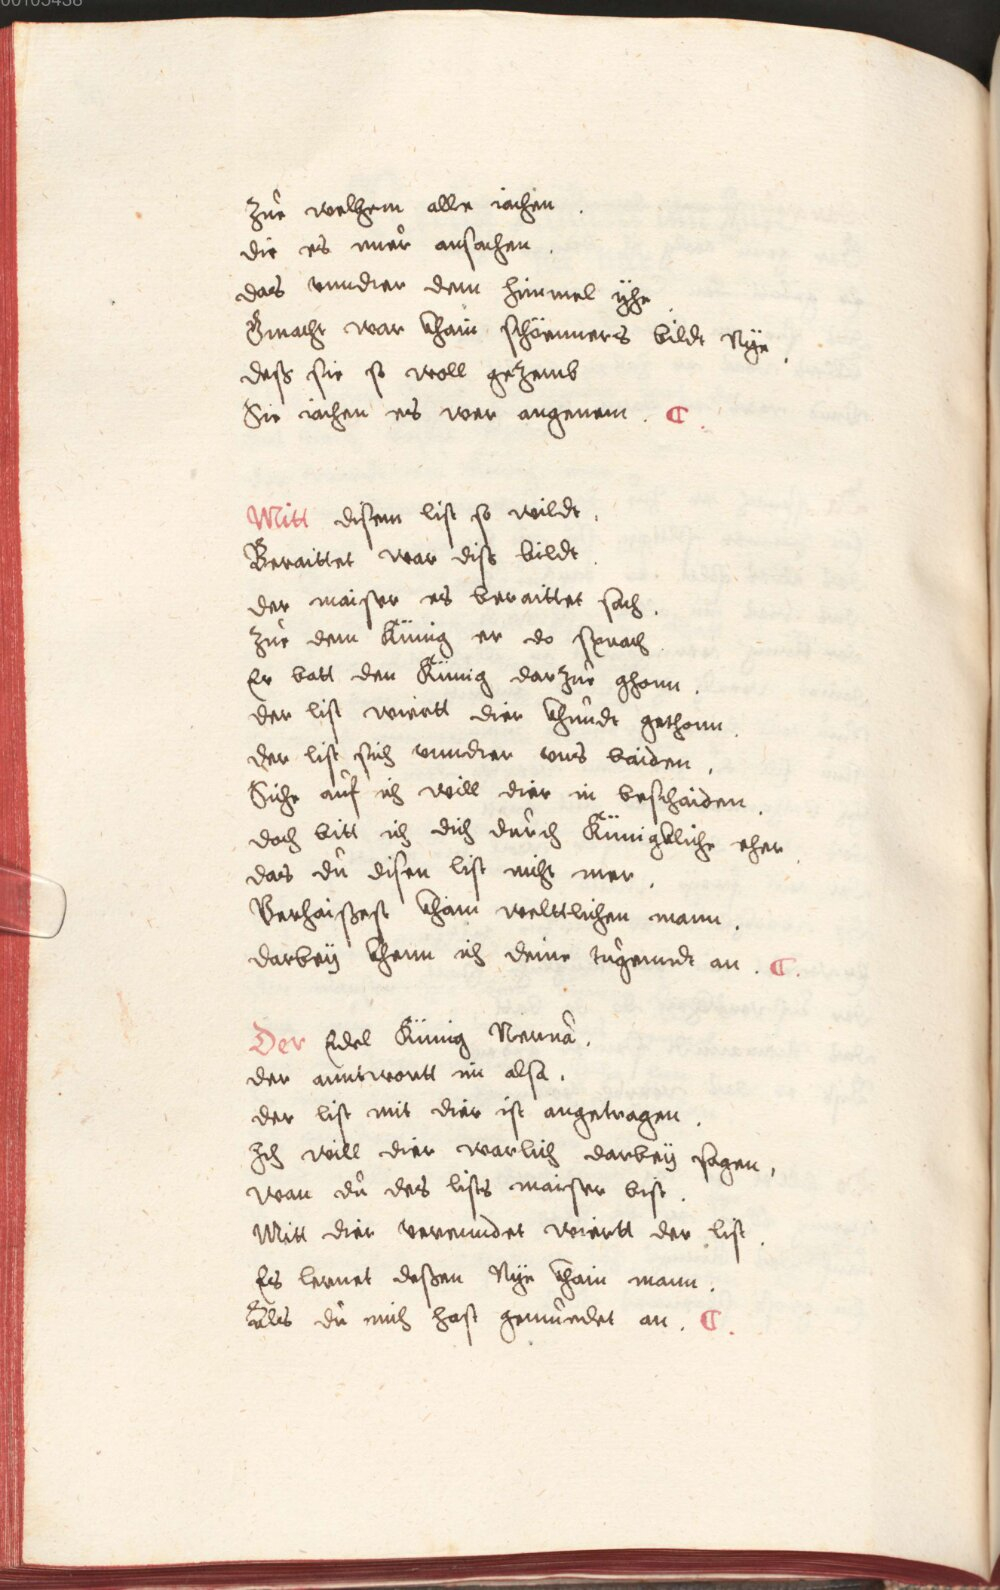 00105438
Zue welhem alle iachen .
die es vner ansachen .
das vnndter dem himmel yhe
Gmacht war khain schöenners bildt Nye .
deß sie so woll gezemb
Sie iachen es wer angenem . C .
Mitt disem list so wildt .
Beraittet war diß bildt .
der maister es beraittet sach .
Zue dem Künig er do sprach
Er batt den Künig darzue ghonn .
der list wiertt dier khundt gethonn .
der list sich vnndter vns baiden .
Siche auf ich will dier in beschaiden .
doch bitt ich dich durch Künigkliche eher .
das du disen list nicht mer .
Verhaißest kham welttlichen mann .
darbey khenn ich deine tugenndt an . C .
Der Edel Künig Nerua .
der anntwortt im also .
der list mit dier ist angetragen .
Ich will dier warlich darbey sagen .
wan du des lists maister bist .
Mitt dier verenndet wiertt der list .
Es lernet deßen Nye khain mann .
Als du mich hast gemuedet an . C .